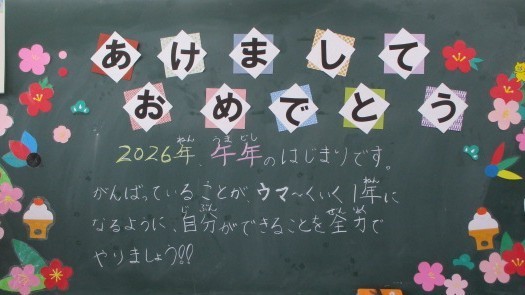 あけまして
おめでとう
2026年、午年のはじまりです。
がんばっていることが、ウマ〜くいく1年に
なるように、自分ができることを全力で
やりましょう!!